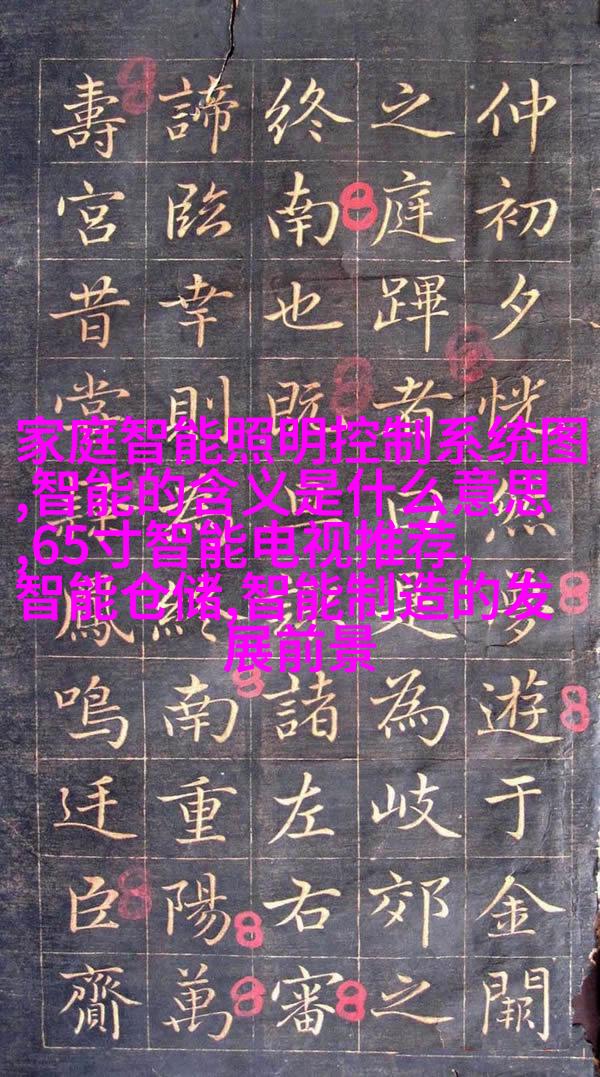 家庭智能照明控制系统图
,智能的含义是什么意思
,65寸智能电视推荐,
智能仓储,智能制造的发
展前景
仲初夕恍然夢遊于金闕
之庭蹕者曰是為岐郊之
終南也既諸左右審
諦臨幸則終南重陽萬
壽宮昔嘗鳳鳴迋臣齎